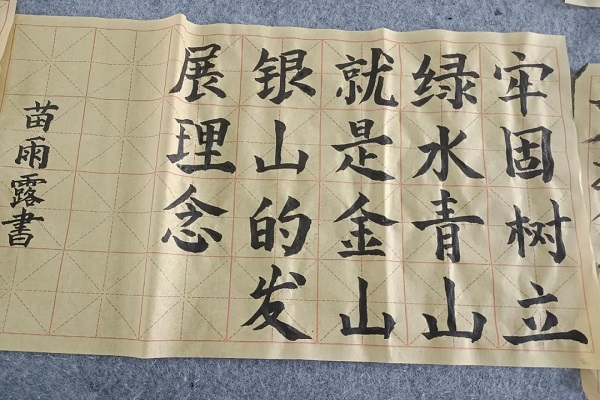 牢固树立
绿水青山
就是金山
银山的发
展理念
苗雨露書